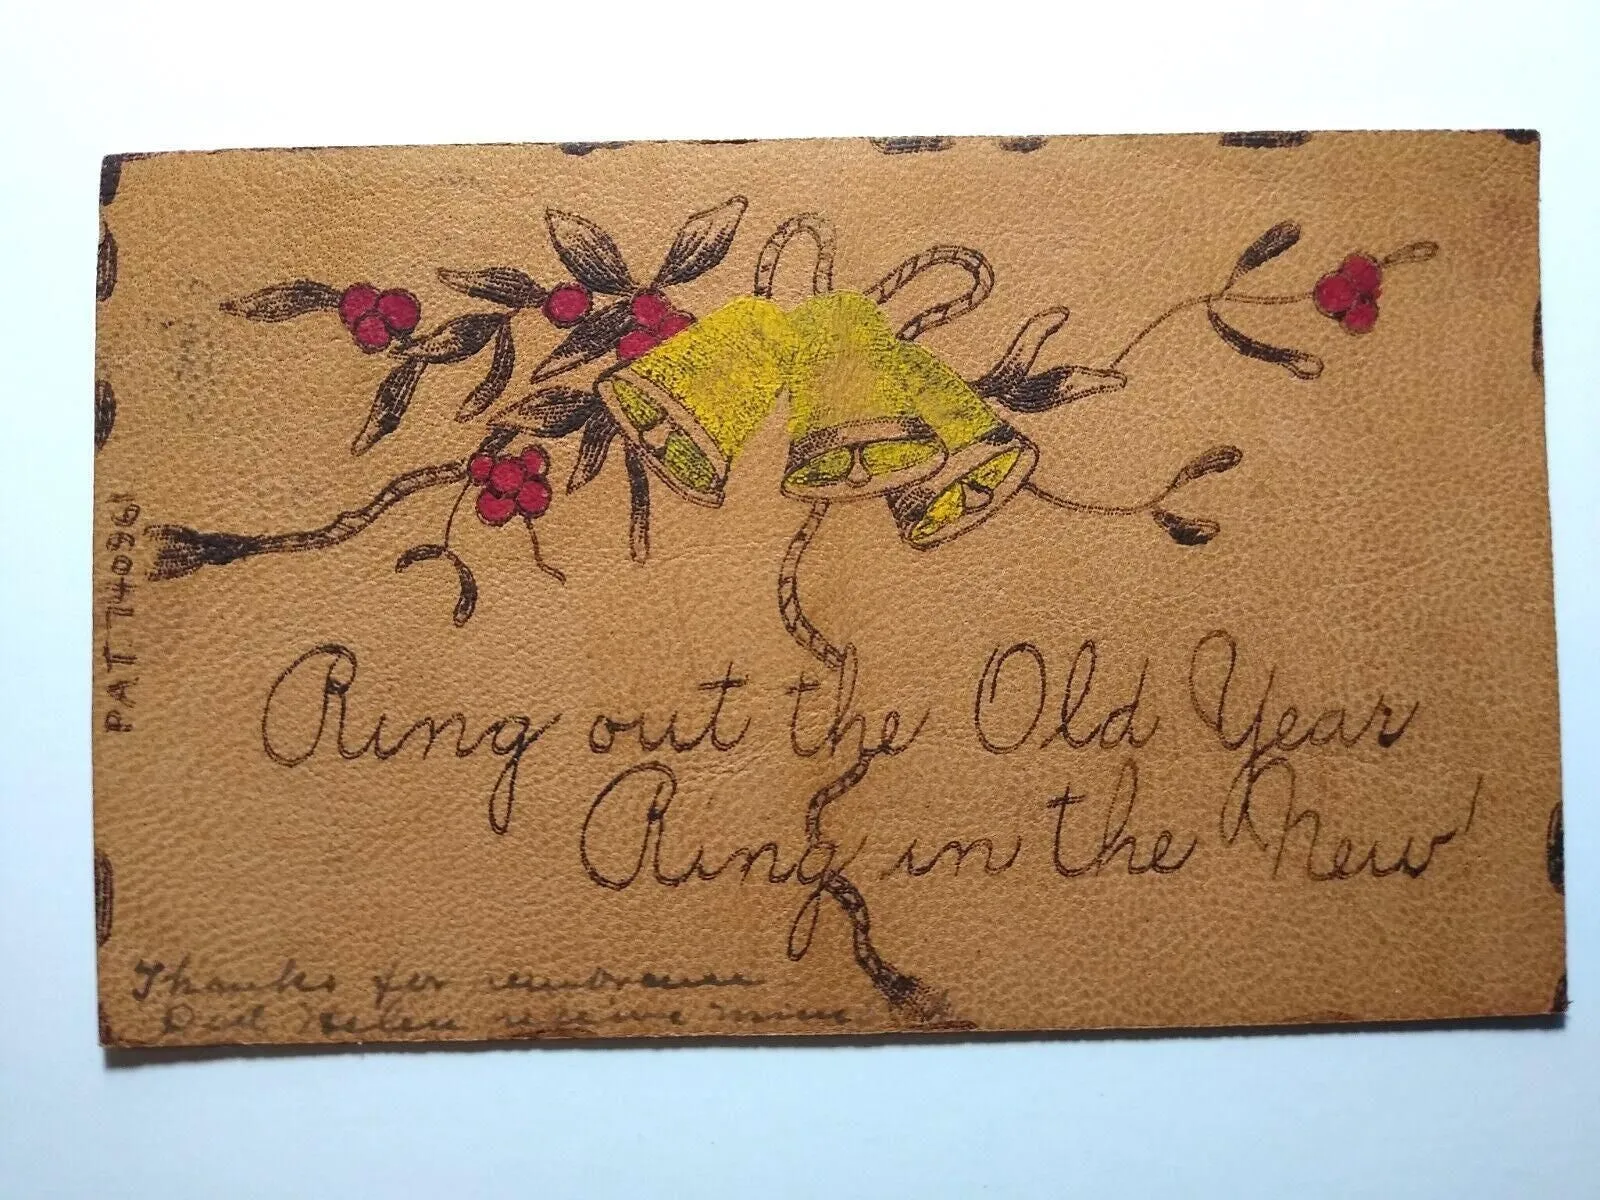 PAT 740961
Ring out the Old Year
Ring in the New!
Thanks for rembrance
Did Helen receive mine